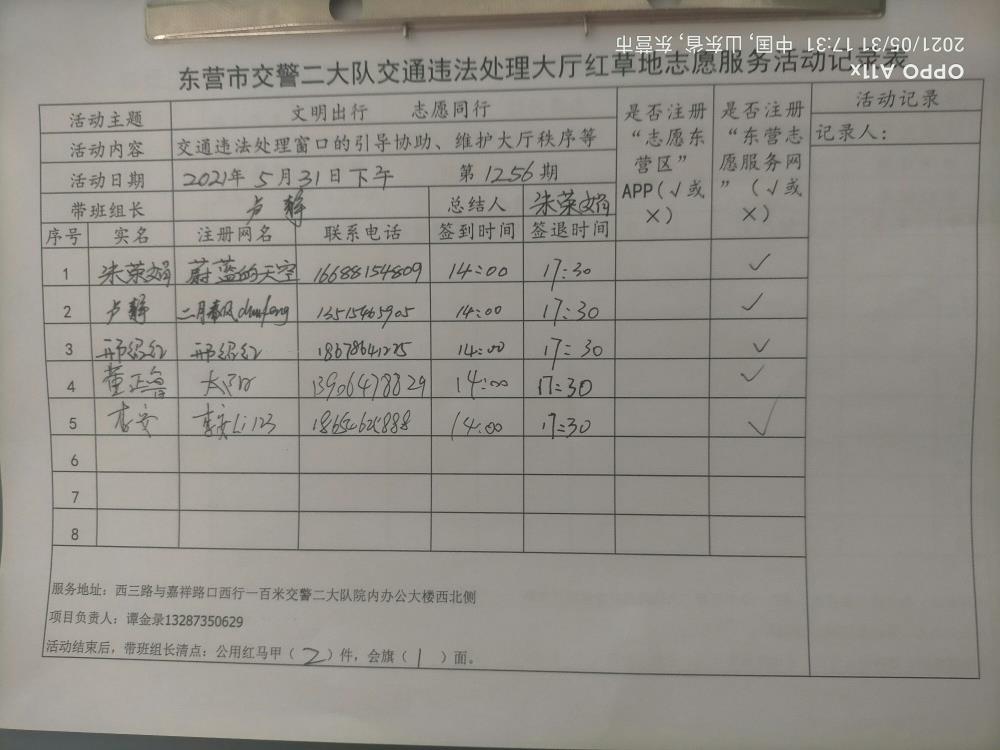 2021/05/31 17:31 中国, 山东省, 东营市
OPPO A11x
东营市交警二大队交通违法处理大厅红草地志愿服务活动记录表
活动主题 文明出行 志愿同行 是否注册“志愿东营区”APP(√或×) 是否注册“东营志愿服务网”(√或×) 活动记录
活动内容 交通违法处理窗口的引导协助、维护大厅秩序等 记录人:
活动日期 2021年5月31日下午 第1256期
带班组长 卢静 总结人 朱荣娟
序号 实名 注册网名 联系电话 签到时间 签退时间
1 朱荣娟 蔚蓝的天空 16688154809 14:00 17:30 ✓
2 卢静 二月春风chunfeng 13515465905 14:00 17:30 ✓
3 邢绍红 邢绍红 18678641225 14:00 17:30 ✓
4 董正鲁 太阳 13906478829 14:00 17:30 ✓
5 李安 李安Li123 14:00 17:30 ✓
6
7
8
服务地址:西三路与嘉祥路口西行一百米交警二大队院内办公大楼西北侧
项目负责人:谭金录13287350629
活动结束后,带班组长清点:公用红马甲(2)件,会旗(1)面。